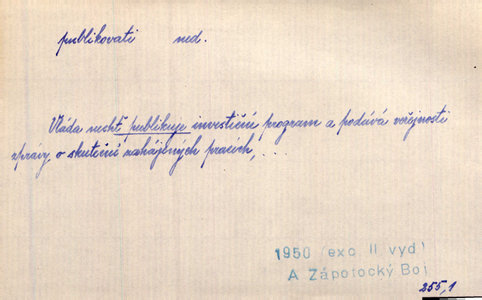 publikovati ned.
Vláda nechť publikuje investiční program a podává veřejnosti
zprávy o skutečně zahájených pracích, . . .
1950 (exc. II. vyd)
A Zápotocký Boj
255,1